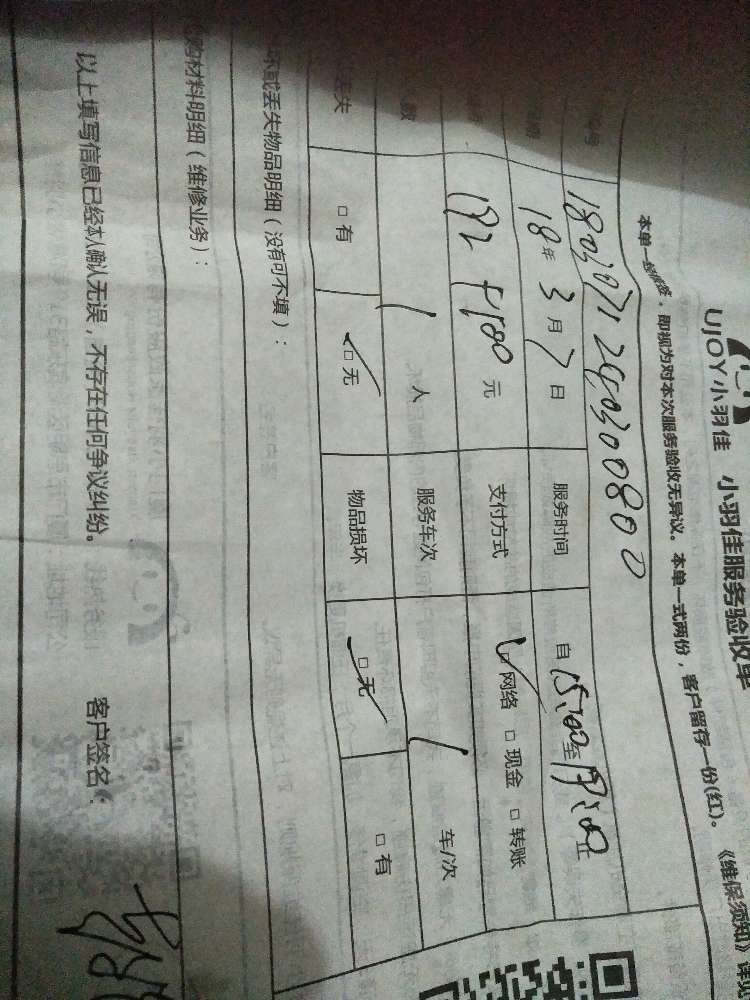 UJOY小羽佳 小羽佳服务验收单
本单一经 , 即视为对本次服务验收无异议。本单一式两份, 客户留存一份(红)。 《维保须知》详见
18年3月7日 服务时间 自15:00至 止
元 支付方式 ☑网络 □现金 □转账
1 人 服务车次 1 车/次
丢失 □有 ☑无 物品损坏 ☑无 □有
坏或丢失物品明细(没有可不填):
材料明细(维修业务):
以上填写信息已经本人确认无误, 不存在任何争议纠纷。 客户签名: